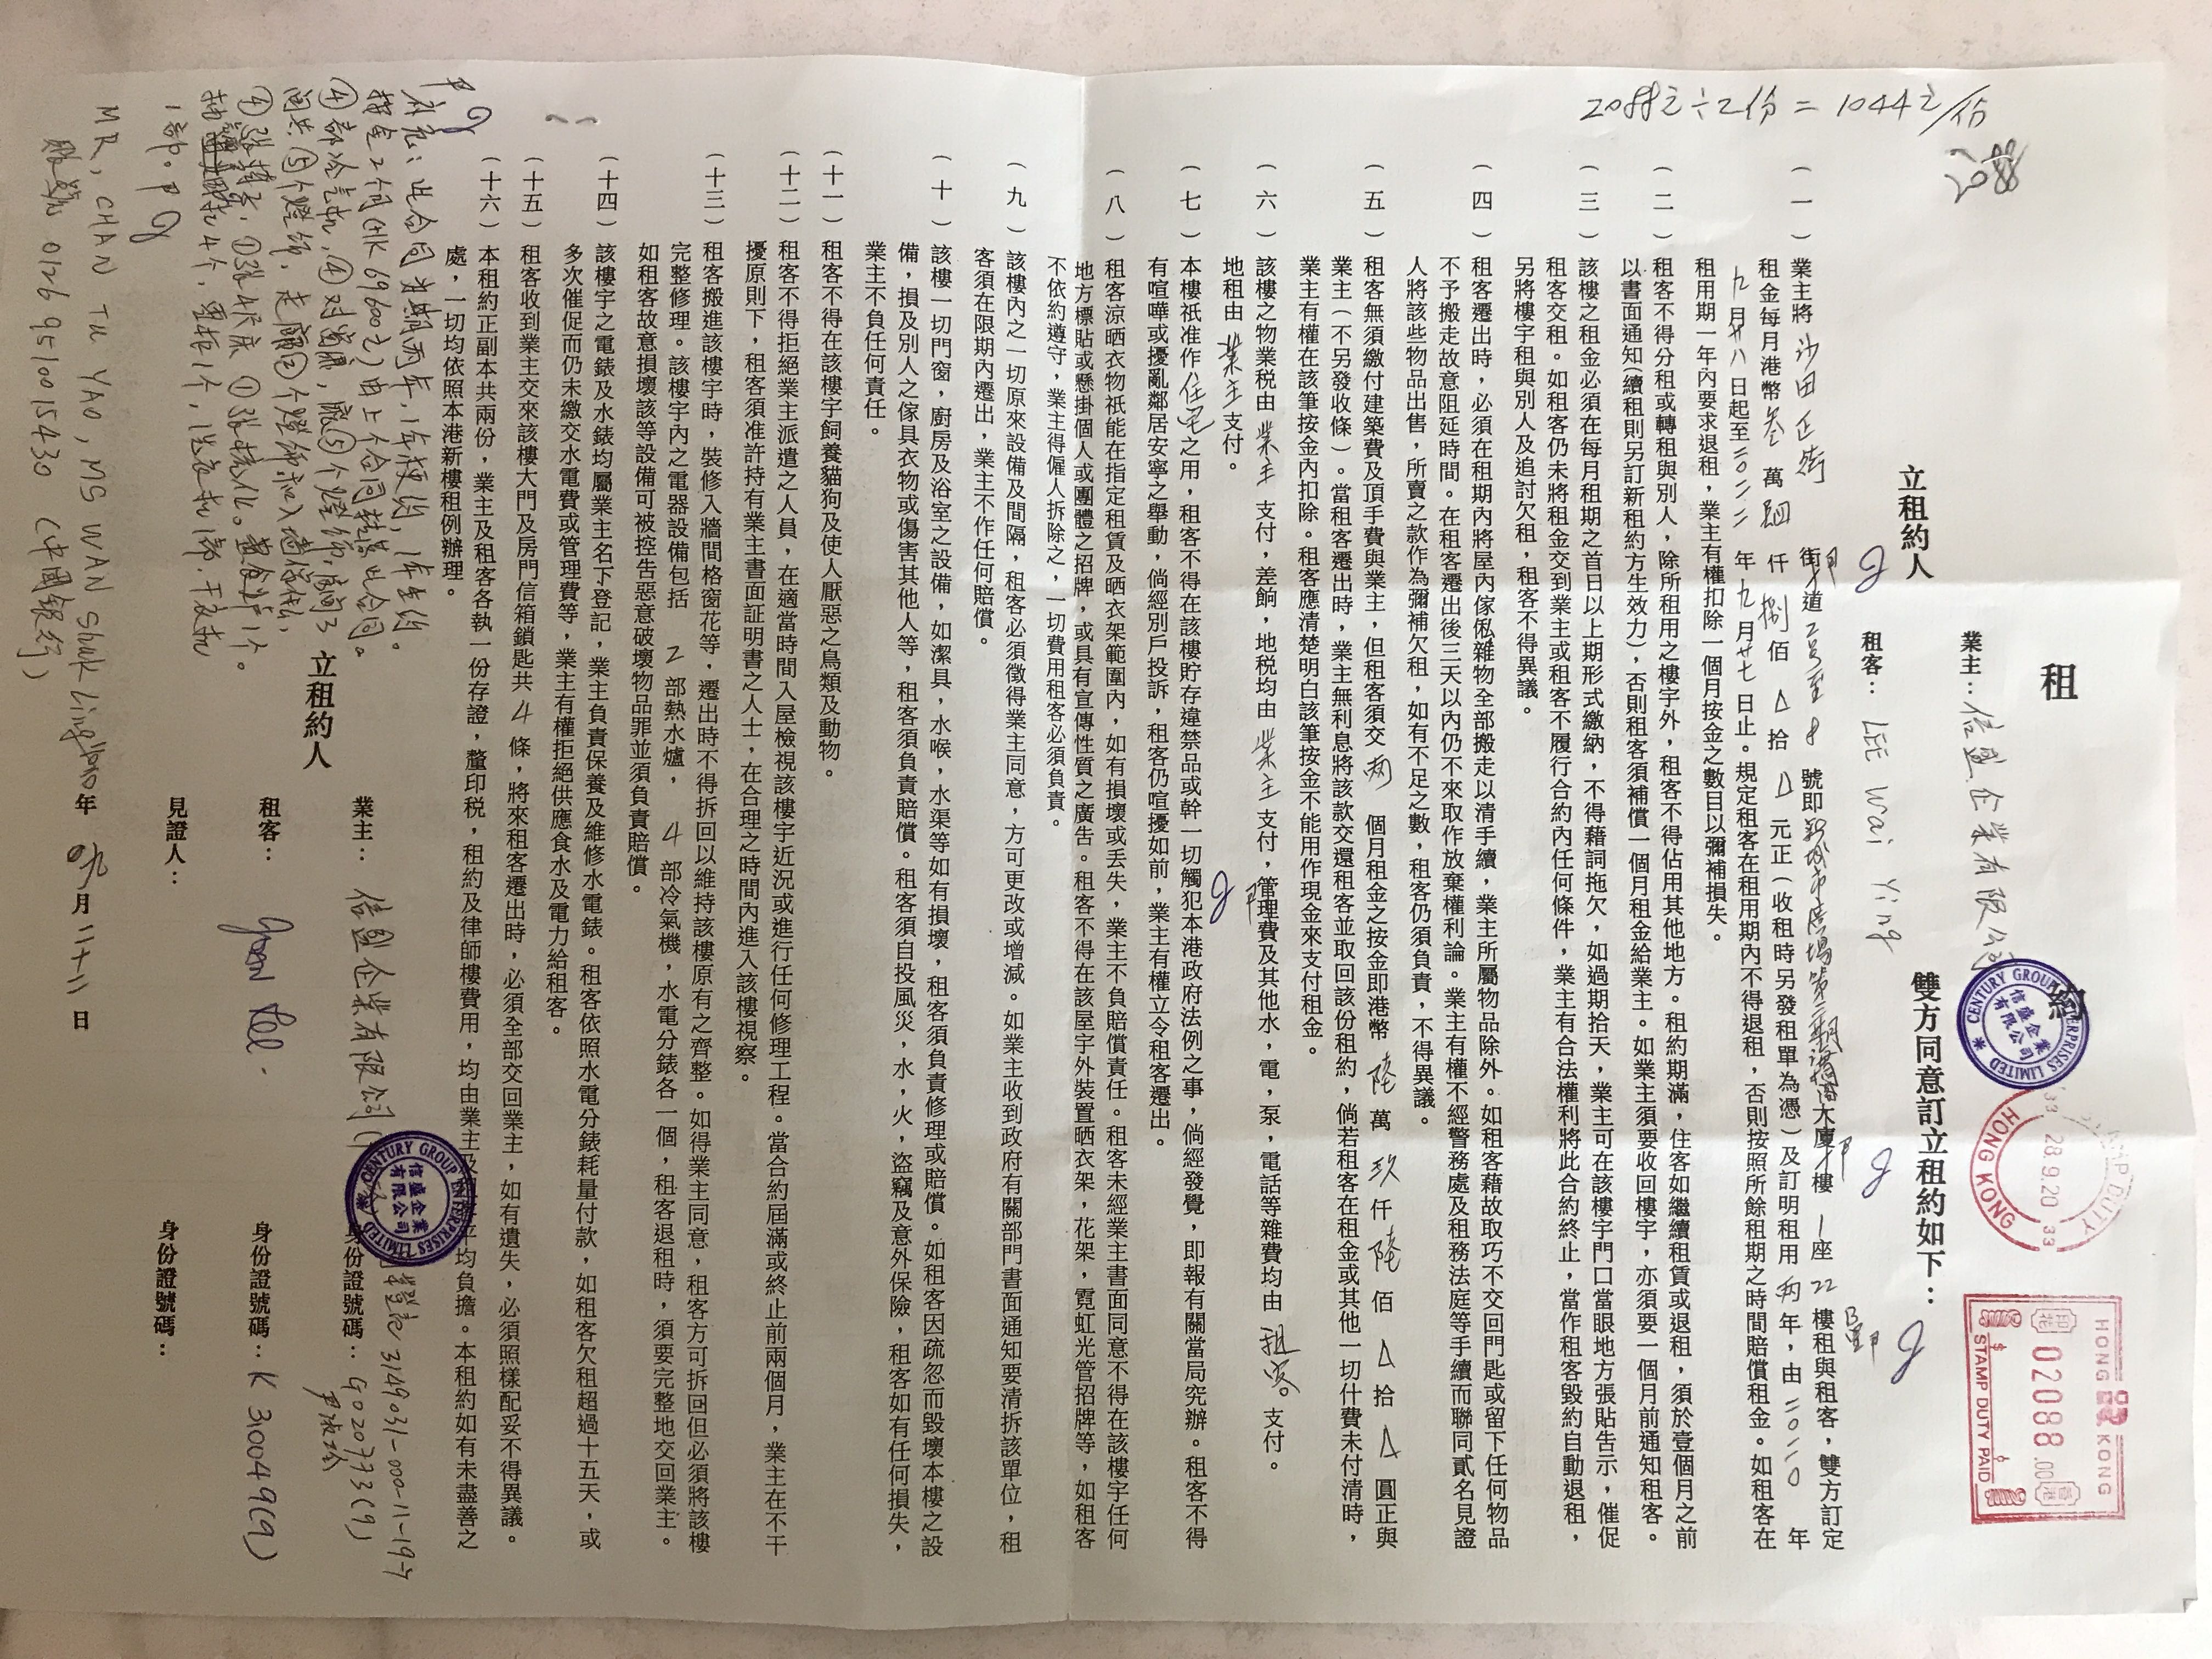 2088元÷2份=1044元/份
2088
租約
業主：信盛企業有限公司
立租約人
租客：LEE Wai Ying
雙方同意訂立租約如下：
CENTURY GROUP ENTERPRISES LIMITED
信盛企業有限公司
STAMP DUTY
28.9.20
33
33
HONG KONG
HONG KONG
02088.00
STAMP DUTY PAID
（一）業主將沙田正街街道2号至8號即新城市廣場第三期大廈樓1座22樓B租與租客，雙方訂定
租金每月港幣叁萬肆仟捌佰△拾△元正（收租時另發租單為憑）及訂明租用兩年，由二〇二〇年
九月廿八日起至二〇二二年九月廿七日止。規定租客在租用期內不得退租，否則按照所餘租期之時間賠償租金。如租客在
租用期一年內要求退租，業主有權扣除一個月按金之數目以彌補損失。
（二）租客不得分租或轉租與別人，除所租用之樓宇外，租客不得佔用其他地方。租約期滿，住客如繼續租賃或退租，須於壹個月之前
以書面通知（續租則另訂新租約方生效力），否則租客須補償一個月租金給業主。如業主須要收回樓宇，亦須要一個月前通知租客。
（三）該樓之租金必須在每月租期之首日以上期形式繳納，不得藉詞拖欠，如過期拾天，業主可在該樓宇門口當眼地方張貼告示，催促
租客交租。如租客仍未將租金交到業主或租客不履行合約內任何條件，業主有合法權利將此合約終止，當作租客毀約自動退租，
另將樓宇租與別人及追討欠租，租客不得異議。
（四）租客遷出時，必須在租期內將屋內傢俬雜物全部搬走以清手續，業主所屬物品除外。如租客藉故取巧不交回門匙或留下任何物品
不予搬走故意阻延時間。在租客遷出後三天以內仍不來取作放棄權利論。業主有權不經警務處及租務法庭等手續而聯同貳名見證
人將該些物品出售，所賣之款作為彌補欠租，如有不足之數，租客仍須負責，不得異議。
（五）租客無須繳付建築費及頂手費與業主，但租客須交兩個月租金之按金即港幣陸萬玖仟陸佰△拾△圓正與
業主（不另發收條）。當租客遷出時，業主無利息將該款交還租客並取回該份租約，倘若租客在租金或其他一切什費未付清時，
業主有權在該筆按金內扣除。租客應清楚明白該筆按金不能用作現金來支付租金。
（六）該樓之物業税由業主支付，差餉，地税均由業主支付，管理費及其他水，電，泵，電話等雜費均由租客。支付。
地租由業主支付。
（七）本樓祇准作住宅之用，租客不得在該樓貯存違禁品或幹一切觸犯本港政府法例之事，倘經發覺，即報有關當局究辦。租客不得
有喧嘩或擾亂鄰居安寧之舉動，倘經別戶投訴，租客仍喧擾如前，業主有權立令租客遷出。
（八）租客涼晒衣物祇能在指定租賃及晒衣架範圍內，如有損壞或丟失，業主不負賠償責任。租客未經業主書面同意不得在該樓宇任何
地方標貼或懸掛個人或團體之招牌，或具有宣傳性質之廣告。租客不得在該屋宇外裝置晒衣架，花架，霓虹光管招牌等，如租客
不依約遵守，業主得僱人拆除之，一切費用租客必須負責。
（九）該樓內之一切原來設備及間隔，租客必須徵得業主同意，方可更改或增減。如業主收到政府有關部門書面通知要清拆該單位，租
客須在限期內遷出，業主不作任何賠償。
（十）該樓一切門窗，廚房及浴室之設備，如潔具，水喉，水渠等如有損壞，租客須負責修理或賠償。如租客因疏忽而毀壞本樓之設
備，損及別人之傢具衣物或傷害其他人等，租客須負責賠償。租客須自投風災，水，火，盜竊及意外保險，租客如有任何損失，
業主不負任何責任。
（十一）租客不得在該樓宇飼養貓狗及使人厭惡之鳥類及動物。
（十二）租客不得拒絕業主派遣之人員，在適當時間入屋檢視該樓宇近況或進行任何修理工程。當合約屆滿或終止前兩個月，業主在不干
擾原則下，租客須准許持有業主書面証明書之人士，在合理之時間內進入該樓視察。
（十三）租客搬進該樓宇時，裝修入牆間格窗花等，遷出時不得拆回以維持該樓原有之齊整。如得業主同意，租客方可拆回但必須將該樓
完整修理。該樓宇內之電器設備包括 2 部熱水爐，4 部冷氣機，水電分錶各一個，租客退租時，須要完整地交回業主。
如租客故意損壞該等設備可被控告惡意破壞物品罪並須負責賠償。
（十四）該樓宇之電錶及水錶均屬業主名下登記，業主負責保養及維修水電錶。租客依照水電分錶耗量付款，如租客欠租超過十五天，或
多次催促而仍未繳交水電費或管理費等，業主有權拒絕供應食水及電力給租客。
（十五）租客收到業主交來該樓大門及房門信箱鎖匙共 4 條，將來租客遷出時，必須全部交回業主，如有遺失，必須照樣配妥不得異議。
（十六）本租約正副本共兩份，業主及租客各執一份存證，釐印税，租約及律師樓費用，均由業主及平均負擔。本租約如有未盡善之
處，一切均依照本港新樓租例辦理。
附註：此合同為期兩年，1年梗約，1年生約。
按金2個月(HK 69600元)由上合同轉過此合同。
④部冷氣机，④对窗簾，廳⑤个燈飾，
共⑤个燈飾，走廊②个燈飾和入墻傢俬，
④張椅子，①張
4个，1个，1个，
1部。
立租約人
業主：信盛企業有限公司
身份證號碼：G020773(9)
登記 3149031-000-11-197
CENTURY GROUP ENTERPRISES LIMITED
信盛企業有限公司
租客：
身份證號碼：K310049(9)
見證人：
身份證號碼：
MR, CHAN TU YAO, MS WAN Shuk Ling
年九月二十二日
賬號 012695100 15430 (中國銀行)